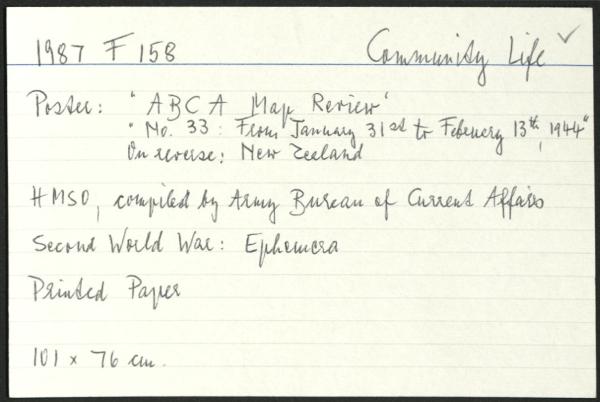 1987 F 158 Community Life ✓
Poster: "ABCA Map Review"
"No. 33: From January 31st to February 13th, 1944"
On reverse: New Zealand
HMSO, compiled by Army Bureau of Current Affairs
Second World War: Ephemera
Printed Paper
101 x 76 cm.